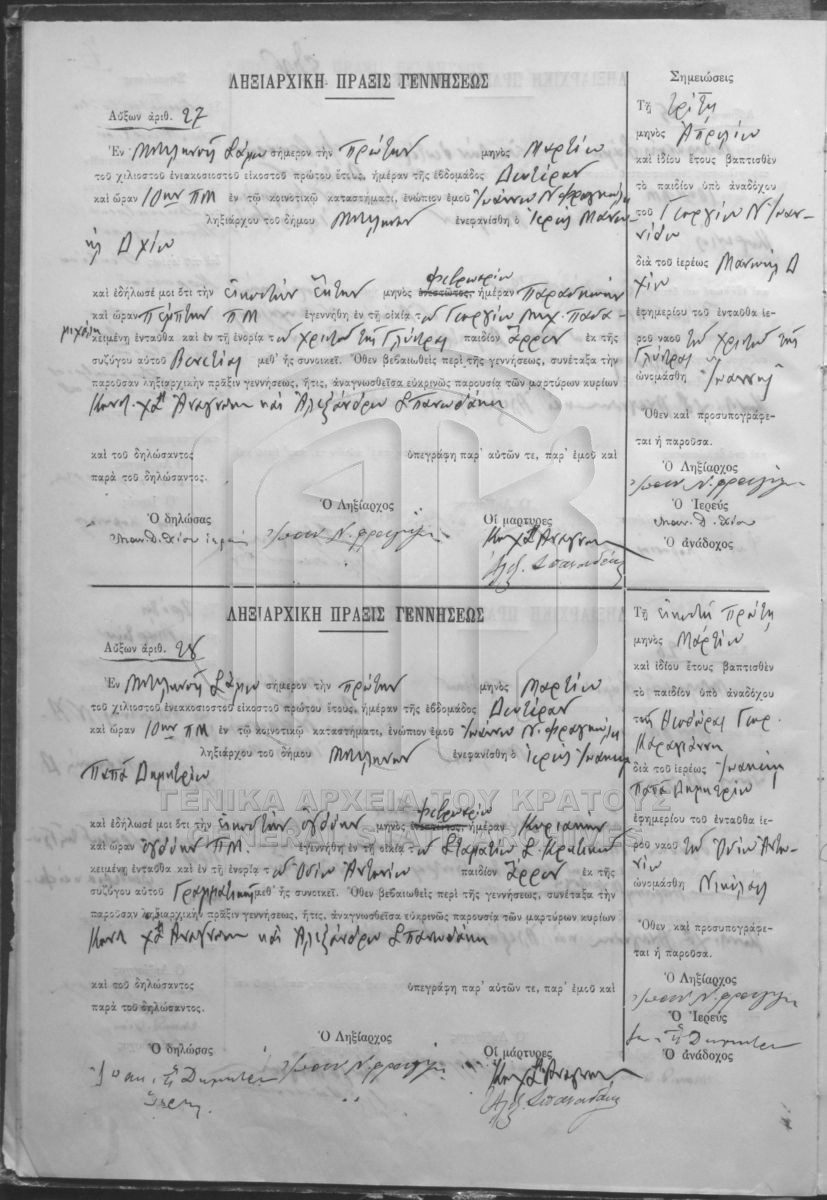 ΛΗΞΙΑΡΧΙΚΗ ΠΡΑΞΙΣ ΓΕΝΝΗΣΕΩΣ
Αὔξων ἀριθ. 27
Ἐν Μυτιληνηῷ Σάμου σήμερον τὴν πρώτην μηνὸς Μαρτίου
τοῦ χιλιοστοῦ ἐνεακοσιοστοῦ εἰκοστοῦ πρώτου ἔτους, ἡμέραν τῆς ἑβδομάδος Δευτέραν
καὶ ὥραν 10ην ΠΜ ἐν τῷ κοινοτικῷ καταστήματι, ἐνώπιον ἐμοῦ Ἰωάννου Ν.
ληξιάρχου τοῦ δήμου ἐνεφανίσθη ὁ Ἱερεὺς Μανου-
ὴλ Δ Χίου
Φεβρουαρίου
καὶ ἐδήλωσέ μοι ὅτι τὴν εἰκοστὴν ἕκτην μηνὸς ἐνεστῶτος, ἡμέραν Παρασκευὴν
καὶ ὥραν πέμπτην ΠΜ ἐγεννήθη ἐν τῇ οἰκίᾳ του Γεωργίου Μιχ. Παπα-
μιχάλη
κειμένῃ ἐνταῦθα καὶ ἐν τῇ ἐνορίᾳ τοῦ Χριστοῦ τῆς παιδίον ἄρρεν ἐκ τῆς
συζύγου αὐτοῦ Βενετίας μεθ' ἧς συνοικεῖ. Ὅθεν βεβαιωθεὶς περὶ τῆς γεννήσεως, συνέταξα τὴν
παροῦσαν ληξιαρχικὴν πρᾶξιν γεννήσεως, ἥτις, ἀναγνωσθεῖσα εὐκρινῶς παρουσίᾳ τῶν μαρτύρων κυρίων
Κωνσ. Χ" καὶ Ἀλεξάνδρου Σπανουδάκη
καὶ τοῦ δηλώσαντος ὑπεγράφη παρ' αὐτῶν τε, παρ' ἐμοῦ καὶ
παρὰ τοῦ δηλώσαντος.
Ὁ δηλώσας Ὁ Ληξίαρχος Οἱ μάρτυρες
Μαν. Δ. Χίου ἱερεὺς
Ἀλεξ. Σπανουδάκης
Σημειώσεις
Τῇ τρίτῃ
μηνὸς Ἀπριλίου
καὶ ἰδίου ἔτους βαπτισθὲν
τὸ παιδίον ὑπὸ ἀναδόχου
τοῦ Γεωργίου Ν. Ἰωαν-
νίδου
διὰ τοῦ ἱερέως Μανουὴλ Δ
Χίου
ἐφημερίου τοῦ ἐνταῦθα ἱε-
ροῦ ναοῦ τοῦ Χριστοῦ τῆς
ὠνομάσθη Ἰωάννης
Ὅθεν καὶ προσυπογράφε-
ται ἡ παροῦσα.
Ὁ Ληξίαρχος
Ὁ Ἱερεύς
Μαν. Δ. Χίου
Ὁ ἀνάδοχος
ΛΗΞΙΑΡΧΙΚΗ ΠΡΑΞΙΣ ΓΕΝΝΗΣΕΩΣ
Αὔξων ἀριθ. 28
Ἐν Μυτιληνηῷ Σάμου σήμερον τὴν πρώτην μηνὸς Μαρτίου
τοῦ χιλιοστοῦ ἐνεακοσιοστοῦ εἰκοστοῦ πρώτου ἔτους, ἡμέραν τῆς ἑβδομάδος Δευτέραν
καὶ ὥραν 10ην ΠΜ ἐν τῷ κοινοτικῷ καταστήματι, ἐνώπιον ἐμοῦ Ἰωάννου Ν.
ληξιάρχου τοῦ δήμου ἐνεφανίσθη ὁ Ἱερεὺς Ἰωακεὶμ
Παπᾶ Δημητρίου
Φεβρουαρίου
καὶ ἐδήλωσέ μοι ὅτι τὴν εἰκοστὴν ὀγδόην μηνὸς ἐνεστῶτος, ἡμέραν Κυριακὴν
καὶ ὥραν ὀγδόην ΠΜ. ἐγεννήθη ἐν τῇ οἰκίᾳ τοῦ Σταματίου Σ.
κειμένῃ ἐνταῦθα καὶ ἐν τῇ ἐνορίᾳ τοῦ Ὁσίου Ἀντωνίου παιδίον ἄρρεν ἐκ τῆς
συζύγου αὐτοῦ Γραμματικῆς μεθ' ἧς συνοικεῖ. Ὅθεν βεβαιωθεὶς περὶ τῆς γεννήσεως, συνέταξα τὴν
παροῦσαν ληξιαρχικὴν πρᾶξιν γεννήσεως, ἥτις, ἀναγνωσθεῖσα εὐκρινῶς παρουσίᾳ τῶν μαρτύρων κυρίων
Κωνσ. Χ" καὶ Ἀλεξάνδρου Σπανουδάκη
καὶ τοῦ δηλώσαντος ὑπεγράφη παρ' αὐτῶν τε, παρ' ἐμοῦ καὶ
παρὰ τοῦ δηλώσαντος.
Ὁ δηλώσας Ὁ Ληξίαρχος Οἱ μάρτυρες
Ἀλεξ. Σπανουδάκης
Τῇ εἰκοστῇ πρώτῃ
μηνὸς Μαρτίου
καὶ ἰδίου ἔτους βαπτισθὲν
τὸ παιδίον ὑπὸ ἀναδόχου
τῆς Θεοδώρας Γεωρ.
Καραγιάννη
διὰ τοῦ ἱερέως Ἰωακεὶμ
Παπᾶ Δημητρίου
ἐφημερίου τοῦ ἐνταῦθα ἱε-
ροῦ ναοῦ τοῦ Ὁσίου Ἀντω-
νίου
ὠνομάσθη Νικόλαος
Ὅθεν καὶ προσυπογράφε-
ται ἡ παροῦσα.
Ὁ Ληξίαρχος
Ὁ Ἱερεύς
Ὁ ἀνάδοχος
ΓΕΝΙΚΑ ΑΡΧΕΙΑ ΤΟΥ ΚΡΑΤΟΥΣ